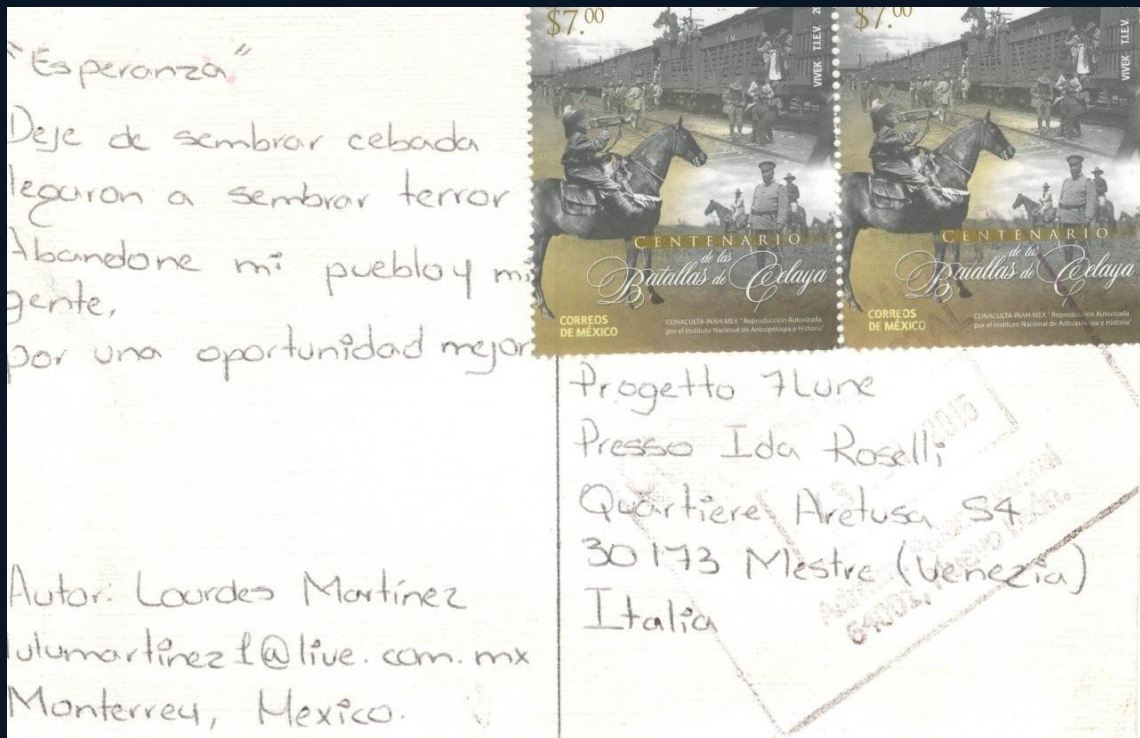 "Esperanza"
Deje de sembrar cebada
legaron a sembrar terror
Abandone mi pueblo y mi
gente,
por una oportunidad mejor
Autor: Lourdes Martínez
lulumartinez1@live.com.mx
Monterrey, Mexico.
$7.00
VIVEX T.I.E.V.
CENTENARIO
de las
Batallas de Celaya
CORREOS
DE MÉXICO
CONACULTA-INAH-MEX "Reproducción Autorizada
por el Instituto Nacional de Antropología e Historia"
$7.00
VIVEX T.I.E.V.
CENTENARIO
de las
Batallas de Celaya
CORREOS
DE MÉXICO
CONACULTA-INAH-MEX "Reproducción Autorizada
por el Instituto Nacional de Antropología e Historia"
Progetto 7Lune
Presso Ida Roselli
Quartiere Aretusa 54
30173 Mestre (Venezia)
Italia
2015